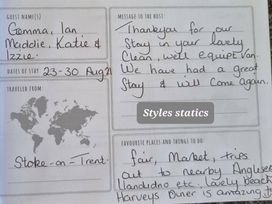 GUEST NAME(S)
Gemma, Ian,
Maddie, Katie &
Izzie.
DATES OF STAY 23-30 Aug 21
TRAVELED FROM:
Stoke-on-Trent.
MESSAGE TO THE HOST:
Thankyou for our
Stay in your lovely
Clean, well equipt van.
We have had a great
Stay & will Come again.
Styles statics
FAVOURITE PLACES AND THINGS TO DO:
fair, Market, trips
out to nearby Anglesea
Llandudno etc. Lovely beach
Harveys Diner is amazing